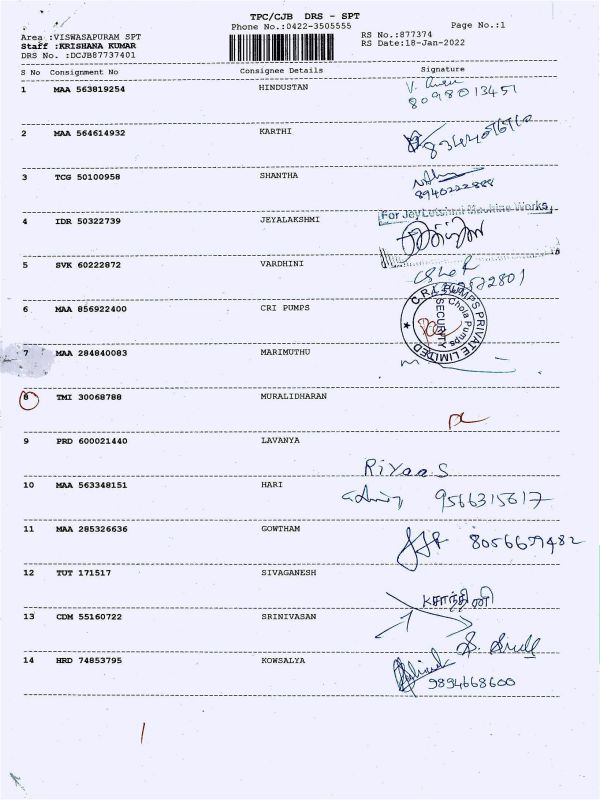 TPC/CJB DRS - SPT
Phone No.:0422-3505555
Page No.:1
Area :VISWASAPURAM SPT
Staff :KRISHANA KUMAR
DRS No. :DCJB87737401
RS No.:877374
RS Date:18-Jan-2022
S No Consignment No Consignee Details Signature
1 MAA 563819254 HINDUSTAN
8098013451
2 MAA 564614932 KARTHI
3 TCG 50100958 SHANTHA
8940222888
4 IDR 50322739 JEYALAKSHMI
For JeyLakshmi Machine Works
5 SVK 60222872 VARDHINI
6 MAA 856922400 CRI PUMPS
C.R.I. PUMPS PRIVATE LIMITED
Chola Pumps
SECURITY
7 MAA 284840083 MARIMUTHU
8 TMI 30068788 MURALIDHARAN
9 PRD 600021440 LAVANYA
Riyaas
10 MAA 563348151 HARI
9566315617
11 MAA 285326636 GOWTHAM
8056679482
12 TUT 171517 SIVAGANESH
13 CDM 55160722 SRINIVASAN
14 HRD 74853795 KOWSALYA
9894668600